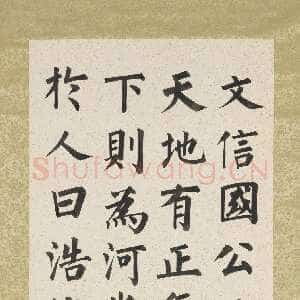 文信國公
天地有正
下則為河
於人曰浩
Shufawang.CN